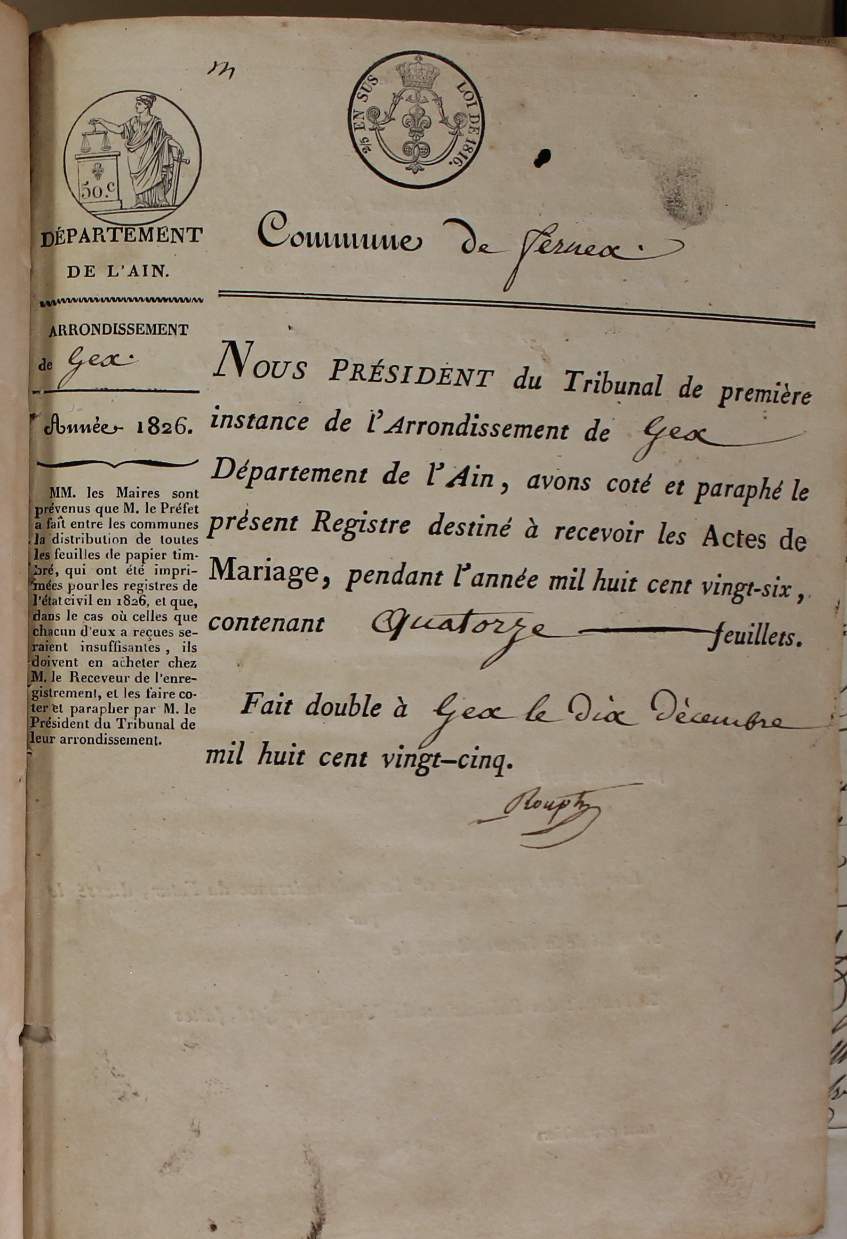 m
2/5 EN SUS
LOI DE 1816.
50.c
DÉPARTEMENT
DE L'AIN.
ARRONDISSEMENT
de Gex.
Année 1826.
MM. les Maires sont
prévenus que M. le Préfet
a fait entre les communes
la distribution de toutes
les feuilles de papier tim-
bré, qui ont été impri-
mées pour les registres de
l'état civil en 1826, et que,
dans le cas où celles que
chacun d'eux a reçues se-
raient insuffisantes, ils
doivent en acheter chez
M. le Receveur de l'enre-
gistrement, et les faire co-
ter et parapher par M. le
Président du Tribunal de
leur arrondissement.
Commune De Fernex.
NOUS PRÉSIDENT du Tribunal de première
instance de l'Arrondissement de Gex
Département de l'Ain, avons coté et paraphé le
présent Registre destiné à recevoir les Actes de
Mariage, pendant l'année mil huit cent vingt-six,
contenant Quatorze feuillets.
Fait double à Gex le Dix Décembre
mil huit cent vingt-cinq.